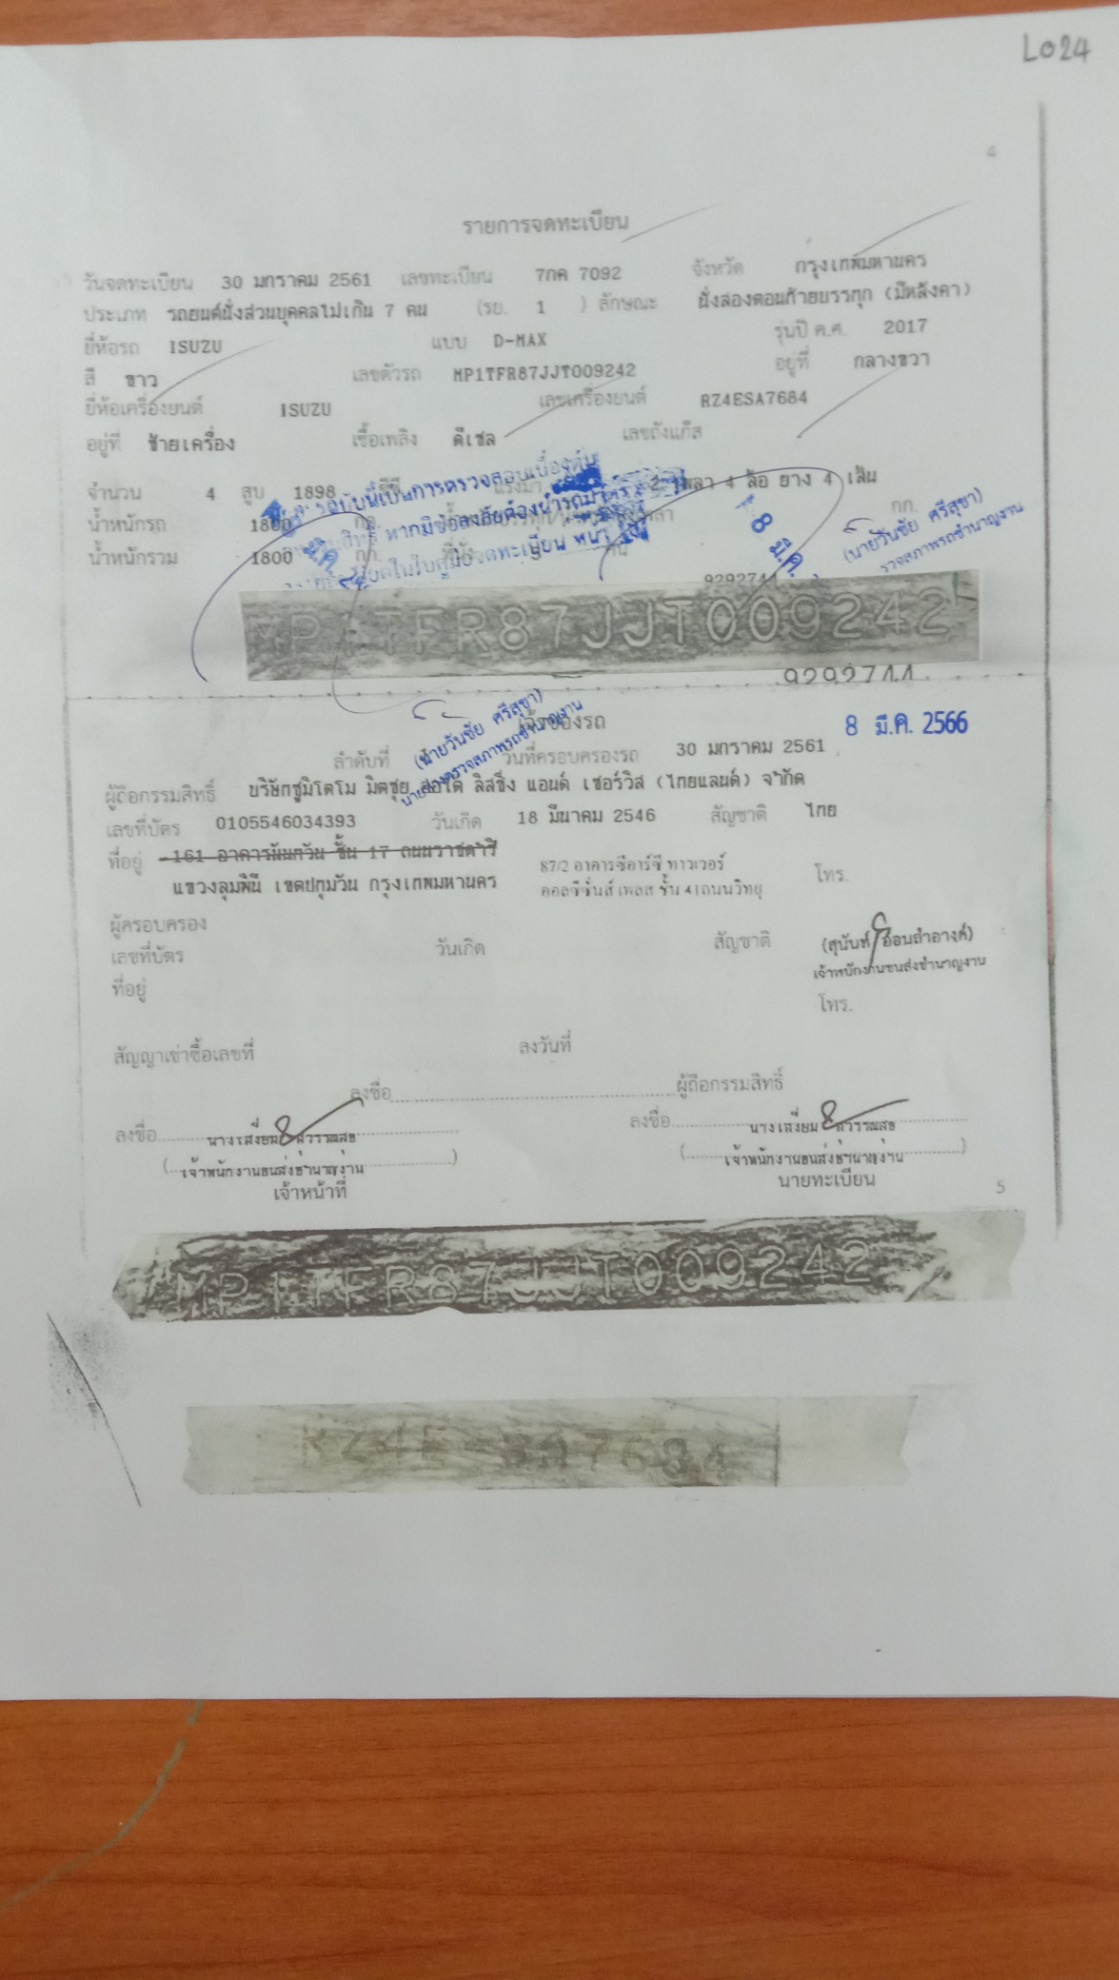 L024
4
รายการจดทะเบียน
วันจดทะเบียน 30 มกราคม 2561 เลขทะเบียน 7กค 7092 จังหวัด กรุงเทพมหานคร
ประเภท รถยนต์นั่งส่วนบุคคลไม่เกิน 7 คน (รย. 1 ) ลักษณะ นั่งสองตอนท้ายบรรทุก (มีหลังคา)
ยี่ห้อรถ ISUZU แบบ D-MAX รุ่นปี ค.ศ. 2017
สี ขาว เลขตัวรถ MP1TFR87JJT009242 อยู่ที่ กลางขวา
ยี่ห้อเครื่องยนต์ ISUZU เลขเครื่องยนต์ RZ4ESA7684
อยู่ที่ ซ้ายเครื่อง เชื้อเพลิง ดีเซล เลขถังแก๊ส
จำนวน 4 สูบ 1898 ซีซี แรงม้า 2 เพลา 4 ล้อ ยาง 4 เส้น
น้ำหนักรถ 1800 กก. กก.
น้ำหนักรวม 1800 กก. ที่นั่ง
8 มี.ค.
(นายวันชัย ศรีสุขา)
9292744
MP1TFR87JJT009242
9292744
เจ้าของรถ
8 มี.ค. 2566
(นายวันชัย ศรีสุขา)
ลำดับที่ วันที่ครอบครองรถ 30 มกราคม 2561
ผู้ถือกรรมสิทธิ์ บริษัทซูมิโตโม มิตซุย ออโต้ ลิสซิ่ง แอนด์ เซอร์วิส (ไทยแลนด์) จำกัด
เลขที่บัตร 0105546034393 วันเกิด 18 มีนาคม 2546 สัญชาติ ไทย
ที่อยู่ 161 อาคารนันทวัน ชั้น 17 ถนนราชดำริ
แขวงลุมพินี เขตปทุมวัน กรุงเทพมหานคร
87/2 อาคารซีอาร์ซี ทาวเวอร์
ออลซีซั่นส์ เพลส ชั้น 41ถนนวิทยุ
โทร.
ผู้ครอบครอง
เลขที่บัตร วันเกิด สัญชาติ
(สุนันท์ อ่อนสำอางค์)
เจ้าพนักงานขนส่งชำนาญงาน
ที่อยู่ โทร.
สัญญาเช่าซื้อเลขที่ ลงวันที่
ลงชื่อ ผู้ถือกรรมสิทธิ์
ลงชื่อ นางเสงี่ยม สุวรรณสุข ลงชื่อ นางเสงี่ยม สุวรรณสุข
(เจ้าพนักงานขนส่งชำนาญงาน) (เจ้าพนักงานขนส่งชำนาญงาน)
เจ้าหน้าที่ นายทะเบียน
5
MP1TFR87JJT009242
RZ4E SA7684